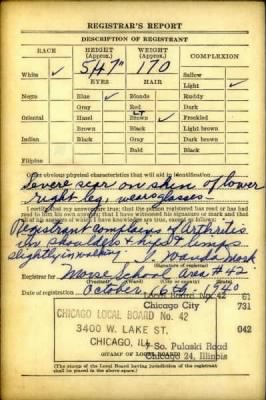 REGISTRAR'S REPORT
DESCRIPTION OF REGISTRANT
RACE HEIGHT (Approx.) WEIGHT (Approx.) COMPLEXION
5'4 170
White ✓ Sallow
EYES HAIR Light ✓
Negro Blue ✓ Blonde Ruddy
Gray Red Dark
Oriental Hazel Brown ✓ Freckled
Brown Black Light brown
Indian Black Gray Dark brown
Bald Black
Filipino
Other obvious physical characteristics that will aid in identification
Severe scar on skin of lower
right leg, wears glasses
I certify that my answers are true; that the person registered has read or has had
read to him his own answers; that I have witnessed his signature or mark and that
all of his answers of which I have knowledge are true, except as follows:
Registrant complains of Arthritis
in shoulders & hips & limps
slightly in walking.
(Signature of registrar)
Registrar for Morse School Area #42
Date of registration October 16th 1940
Local Board No. 42 61
Chicago City 731
CHICAGO LOCAL BOARD No. 42
3400 W. LAKE ST. 042
CHICAGO, ILL.
So. Pulaski Road
Chicago 24, Illinois
(STAMP OF LOCAL BOARD)
(The stamp of the Local Board having jurisdiction of the registrant
shall be placed in the above space.)